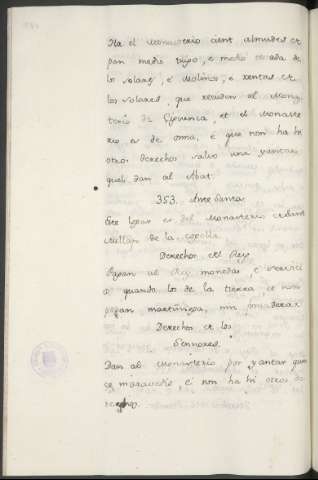 Ha el Monasterio cient almudes de
pan medio trigo, e medio cevada de
los solares, e Molinos, e rentas de
los solares, que recuden al Monas
terio de Ojeunca, et el Monaste
rio es de orna, e que non ha hi
otros derechos salvo una yantar
quel dan al Abat.
353. Ante Santa
Este logar es del Monasterio de Sant
Millan de la cogolla.
Derechos del Rey
Pagan al Rey monedas e servicios
e quando los de la tierra e non
pagan martiniega, nin fonsadera.
Derechos de los
Sennores.
Dan al Monasterio por yantar quin
ce maravedis e non ha hi otros de
rechos.